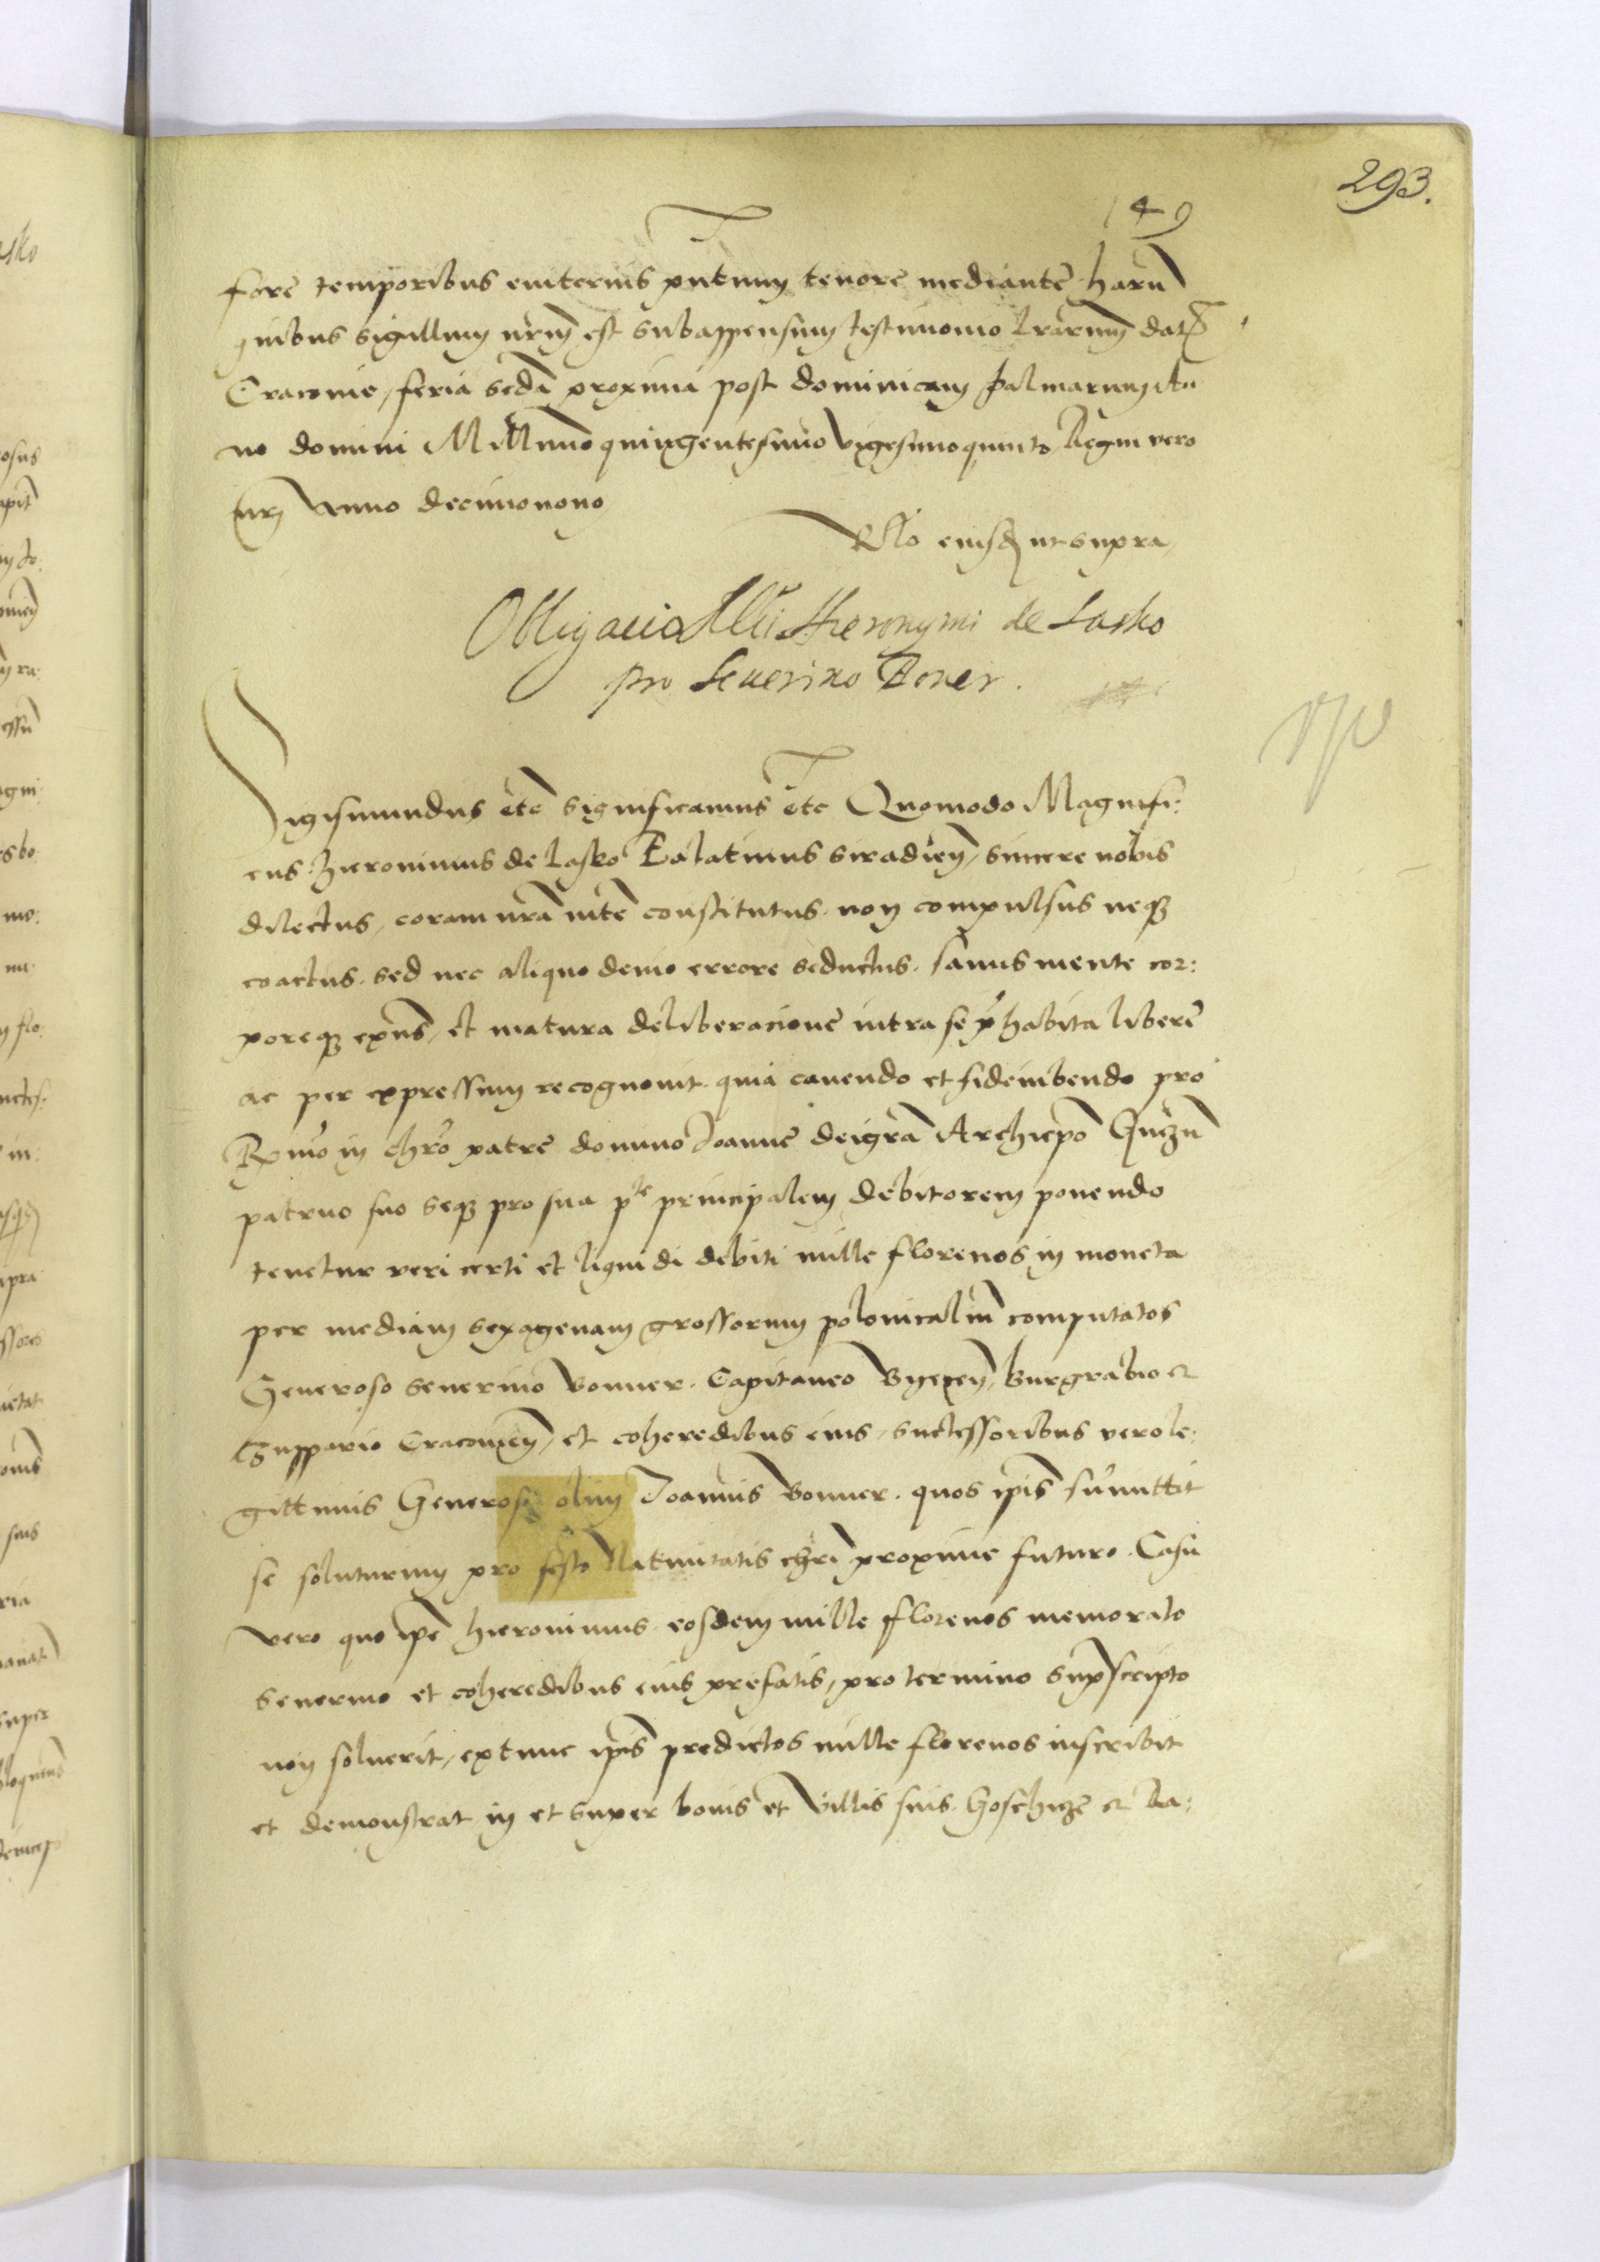 293.
149
fore temporibus eviternis pntium tenore mediante harū
quibus sigillum nrm est subappensum testimonio lrarum dat
Cracovie, feria secda proxima post dominicam palmarum An
no domini Millmo quingentesimo vigesimoquinto Regni vero
nri Anno decimonono
Rlo eiusd ut supra
Obligacio Hieronymi de Lasko
pro Severino Boner.
Sigismundus etc significamus etc Quomodo Magnifi:
cus Hieronimus de Lasko Palatinus siradien, sincere nobis
dilectus, coram nra constitutus non compulsus neq
coactus sed nec aliquo devio errore seductus sanus mente cor:
poreq exns, et matura deliberacione intra se phabita libere
ac per expressum recognovit quia cavendo et fideiubendo pro
Rmo in chro patre domino Joanne dei gra Archiepo Gnezn
patruo suo seq pro sua pte principalem debitorem ponendo
tenetur veri certi et liquidi debiti mille florenos in moneta
per mediam sexagenam grossorum polonicaliū computatos
Generoso Severino Bonner Capitaneo Byecen, Burgrabio &
Zuppario Cracovien, et coheredibus eius, successoribus vero le:
gittimis Generosi olim Joannis Bonner quos ipis summittit
se soluturum pro festo Nativitatis chri proxime futuro. Casu
vero quo ipe hieronimus eosdem mille florenos memorato
Severino et coheredibus eius prefatis, pro termino supscripto
non solverit, extunc ipis predictos mille florenos inscribit
et demonstrat in et super bonis et villis suis &